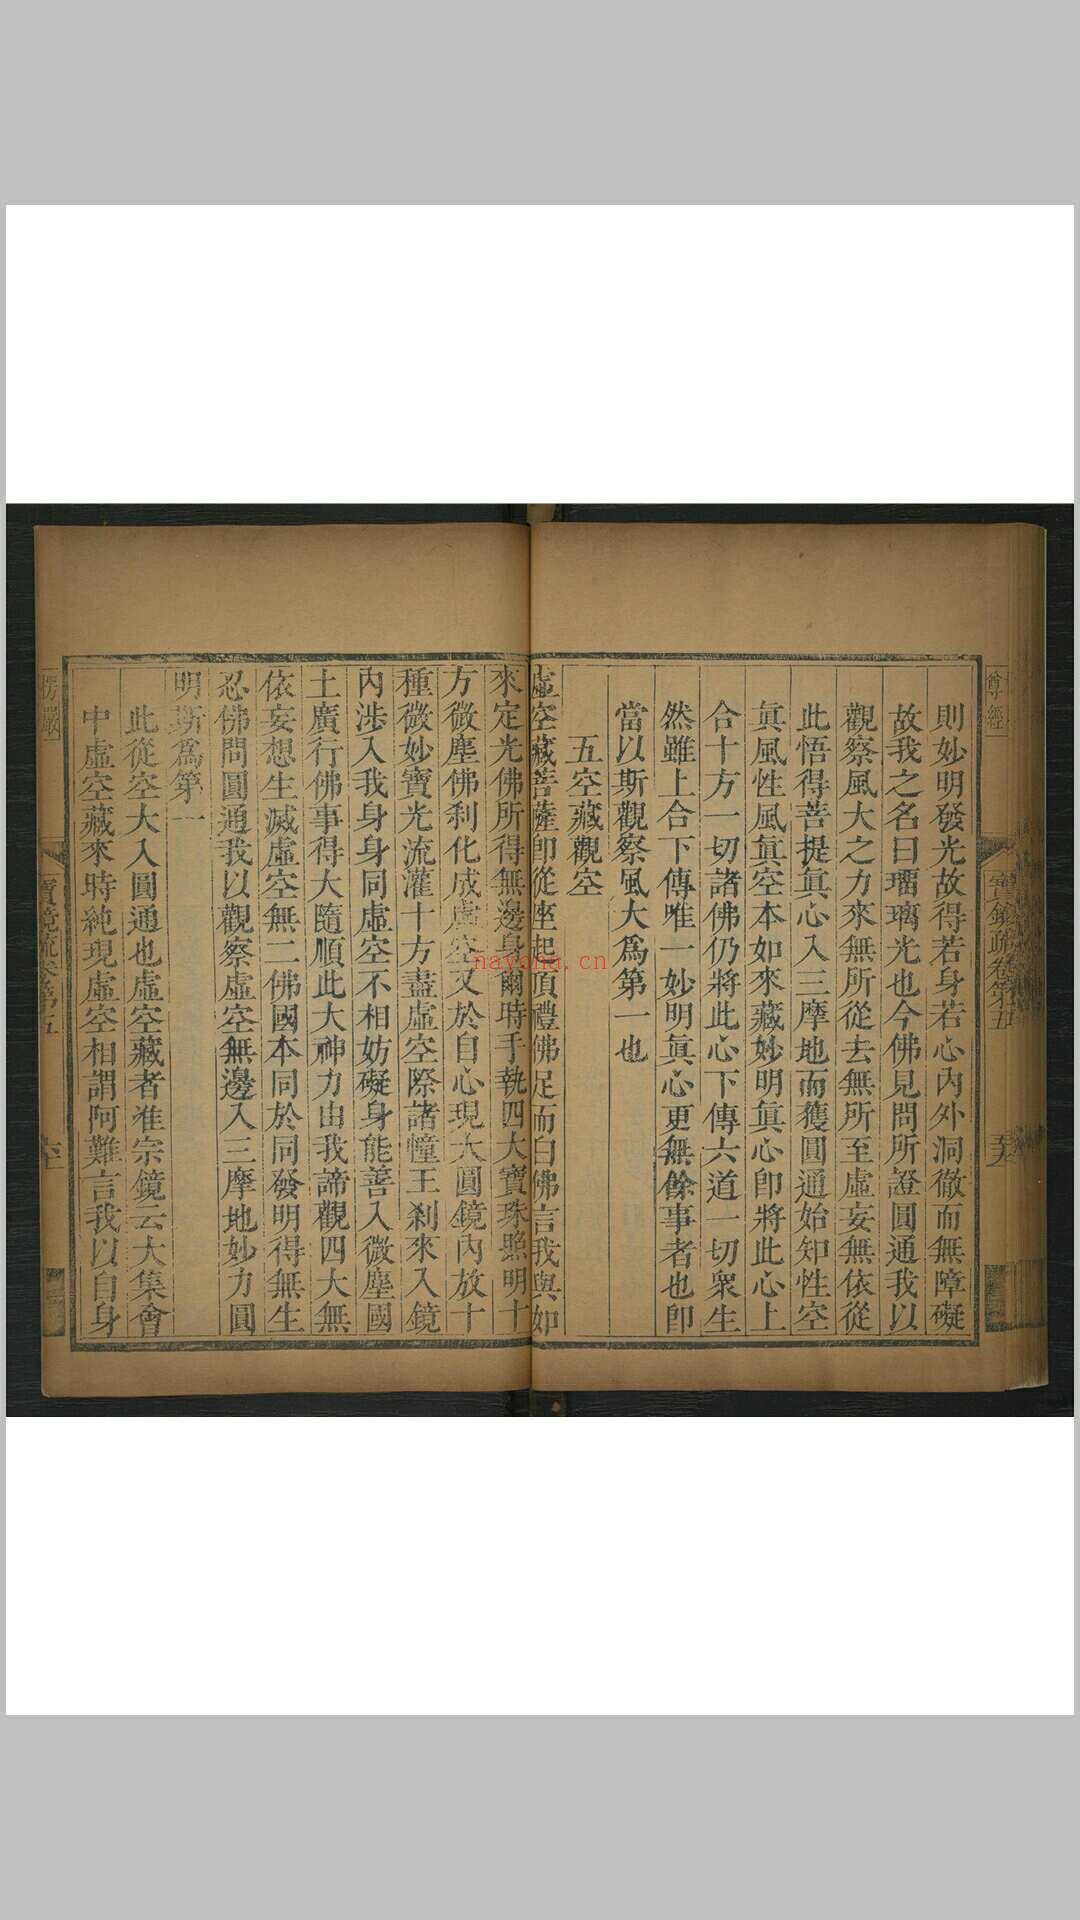 則妙明發光故得若身若心內外洞徹而無障礙
故我之名曰瑠璃光也今佛見問所證圓通我以
觀察風大之力來無所從去無所至虛妄無依從
此悟得菩提眞心入三摩地而獲圓通始知性空
眞風性風眞空本如來藏妙明眞心卽將此心上
合十方一切諸佛仍將此心下傳六道一切衆生
然雖上合下傳唯一妙明眞心更無餘事者也卽
當以斯觀察風大爲第一也
五空藏觀空
虛空藏菩薩卽從座起頂禮佛足而白佛言我與如
來定光佛所得無邊身爾時手執四大寶珠照明十
方微塵佛刹化成虛空又於自心現大圓鏡內放十
種微妙寶光流灌十方盡虛空際諸幢王刹來入鏡
內涉入我身身同虛空不相妨礙身能善入微塵國
土廣行佛事得大隨順此大神力由我諦觀四大無
依妄想生滅虛空無二佛國本同於同發明得無生
忍佛問圓通我以觀察虛空無邊入三摩地妙力圓
明斯爲第一
此從空大入圓通也虛空藏者准宗鏡云大集會
中虛空藏來時純現虛空相謂阿難言我以自身
尊經
寶鏡疏卷第五
楞嚴
寶鏡疏卷第五
nayona.cn